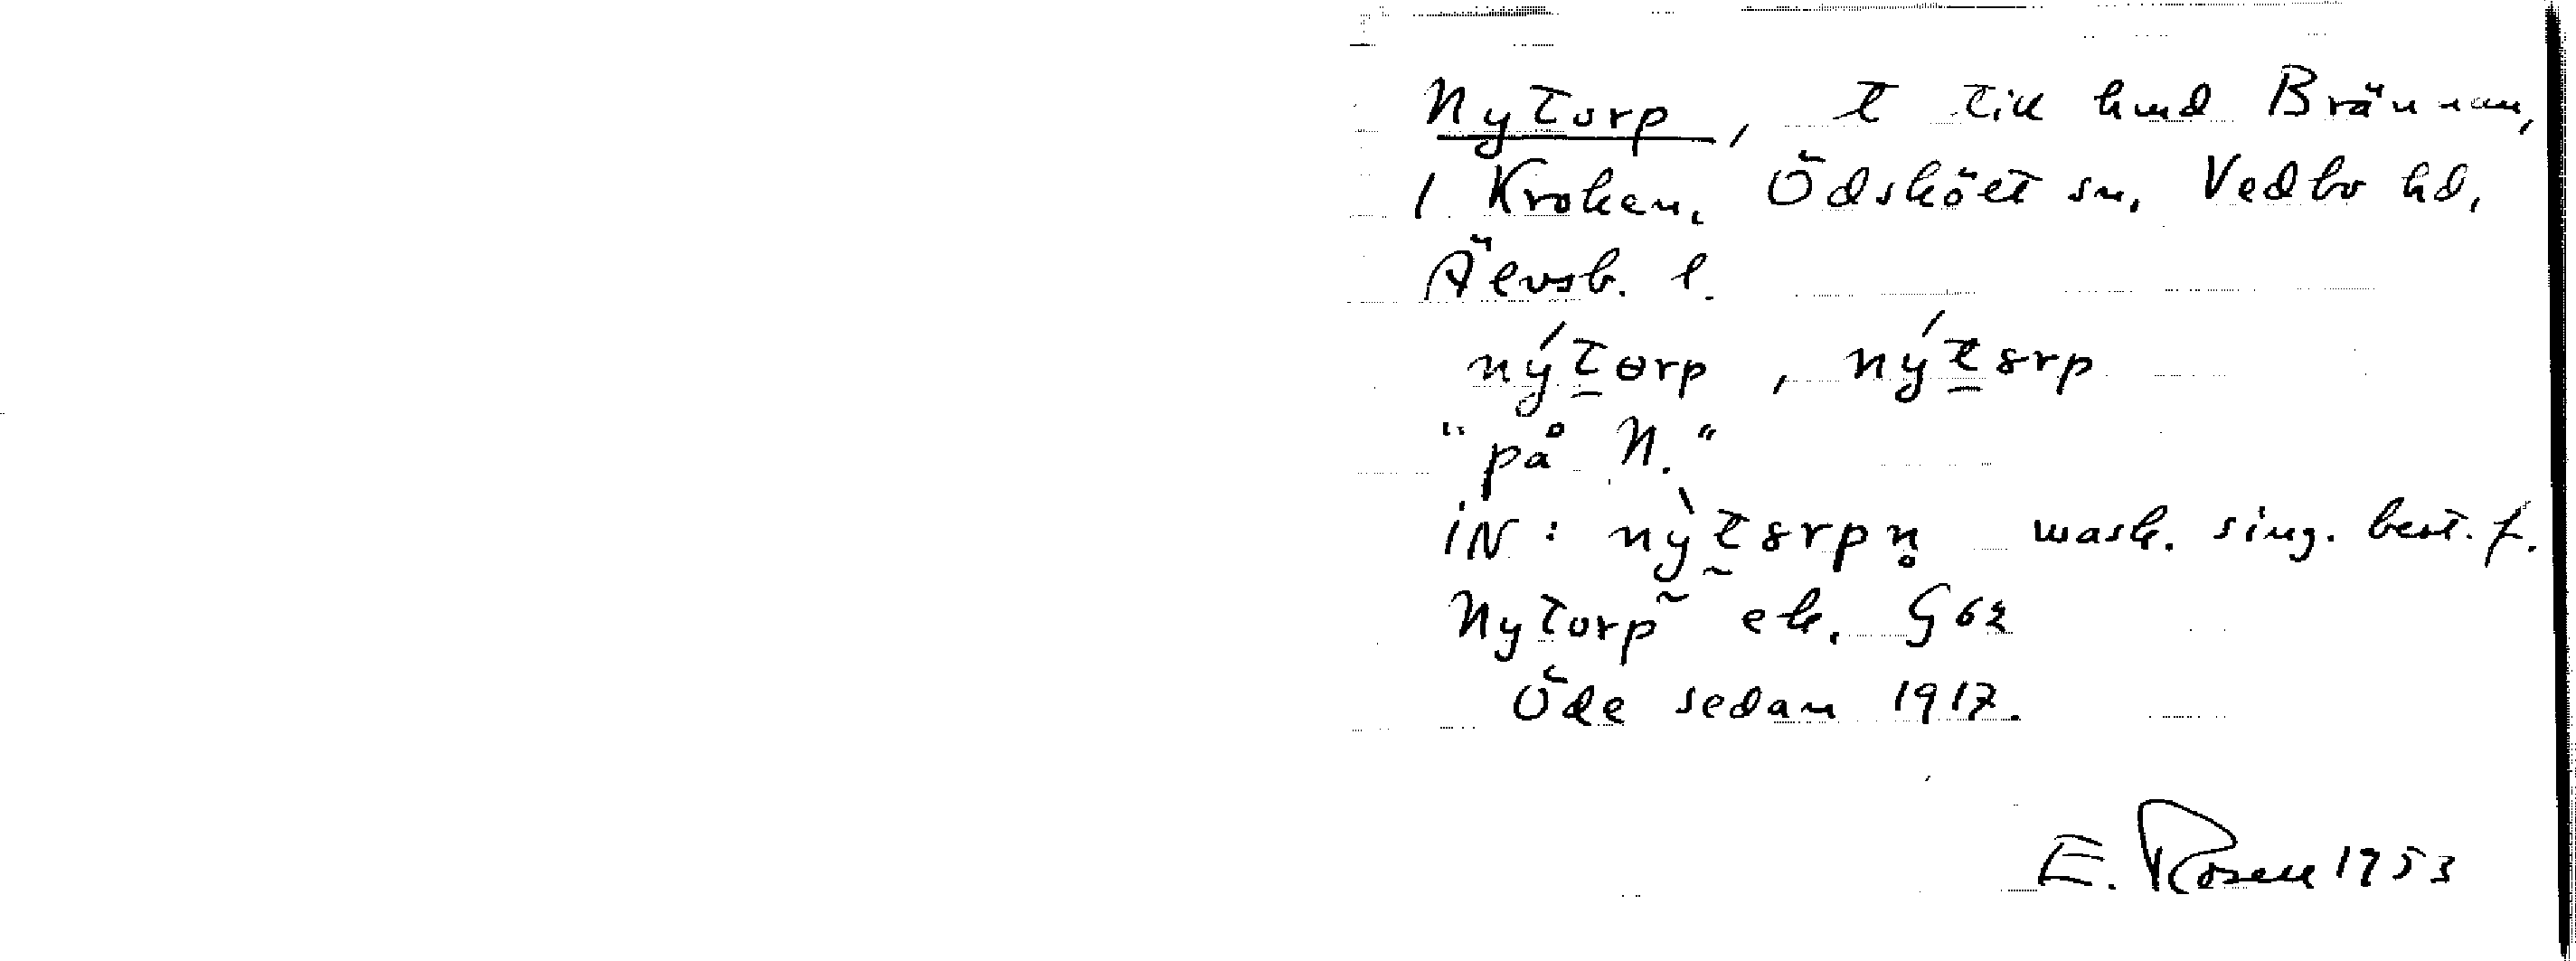 Nytorp, t till hmd Brännan,
1 Kroken. Ödskölt sn, Vedbo hd,
Älvsb. l.
nýt̲ɵrp, nýt̲8rp
"på N."
iN: nỳt̰8rpn̥ mask. sing. best. f.
Nytorp~ ek. G62
Öde sedan 1917.
E. Rosell 1953